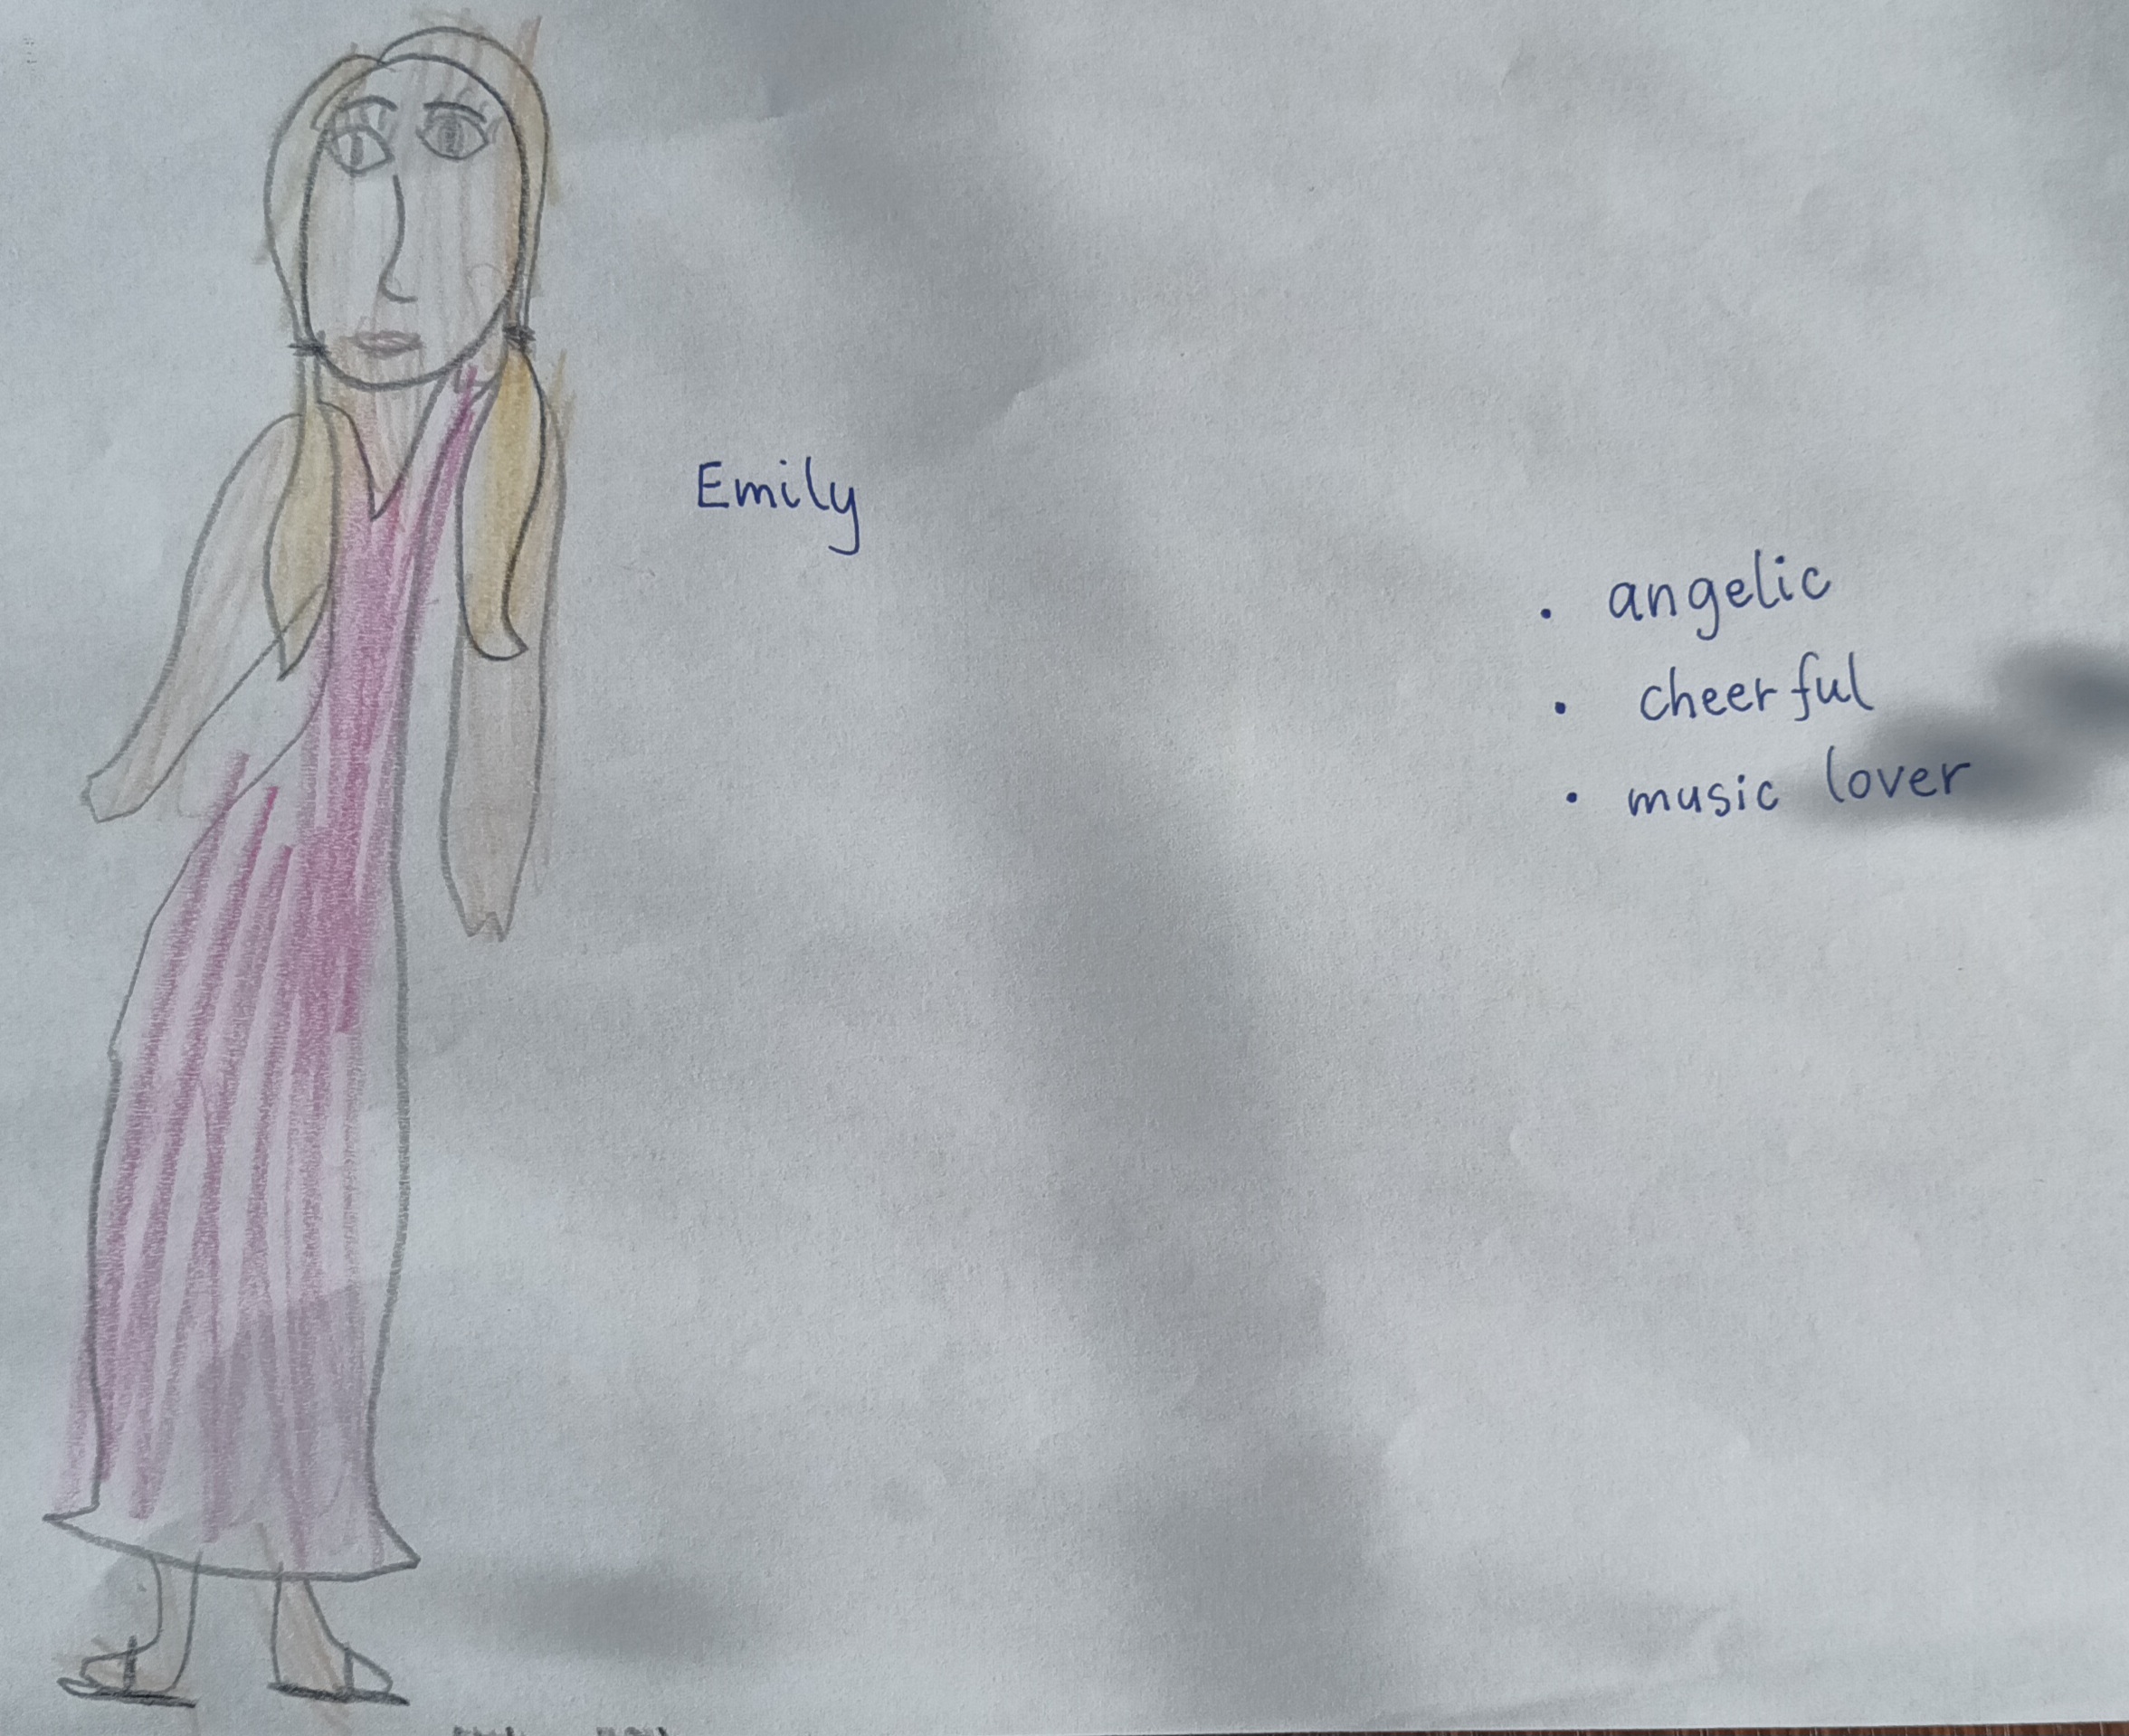 Emily
. angelic
. cheerful
. music lover